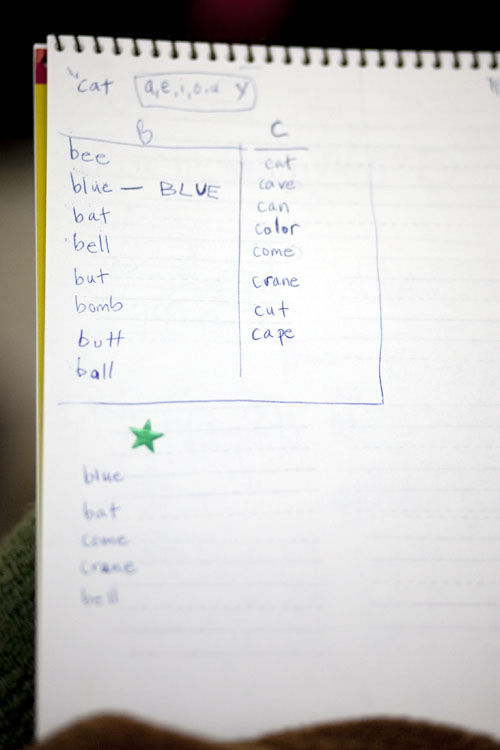 "cat a,e,i,o,u y
B
C
bee
blue — BLUE
bat
bell
but
bomb
butt
ball
cat
cave
can
color
come
crane
cut
cape
blue
bat
come
crane
bell